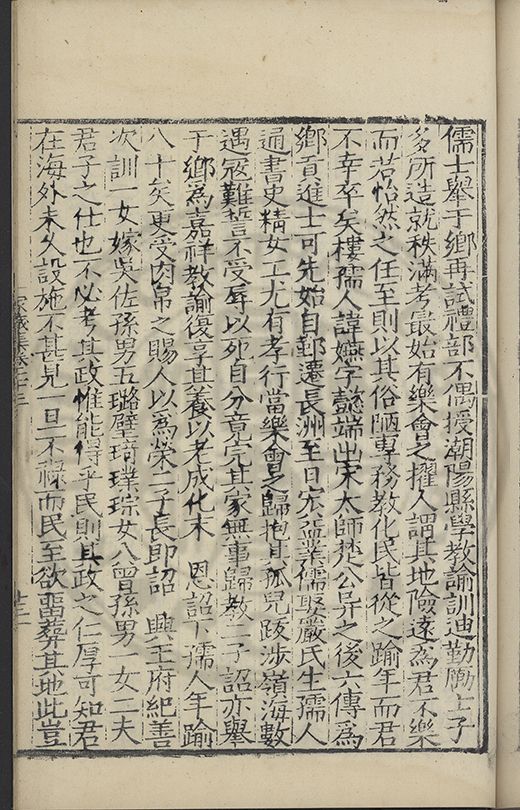 儒士舉于鄉再試禮部不偶授潮陽縣學教諭訓迪勤勵士子
多所造就秩滿考最始有樂會之擢人謂其地險遠為君不樂
而君怡然之任至則以其俗陋專務教化民皆從之踰年而君
不幸卒矣樓孺人諱嬿字懿端出宋太師楚公异之後六傳為
鄉貢進士可先始自鄞遷長洲至日宏益業儒娶嚴氏生孺人
通書史精女工尤有孝行當樂會之歸抱其孤兒跋涉嶺海數
遇寇難誓不受辱以死自分竟完其家無事歸教二子詔亦舉
于鄉為嘉祥教諭復享其養以老成化末 恩詔下孺人年踰
八十矣更受肉帛之賜人以為榮二子長即詔 興王府紀善
次訓一女嫁吳佐孫男五璐璧琦璞琮女八曾孫男一女二夫
君子之仕也不必考其政惟能得乎民則其政之仁厚可知君
在海外未久設施不甚見一旦不祿而民至欲留葬其地此豈
家藏集卷